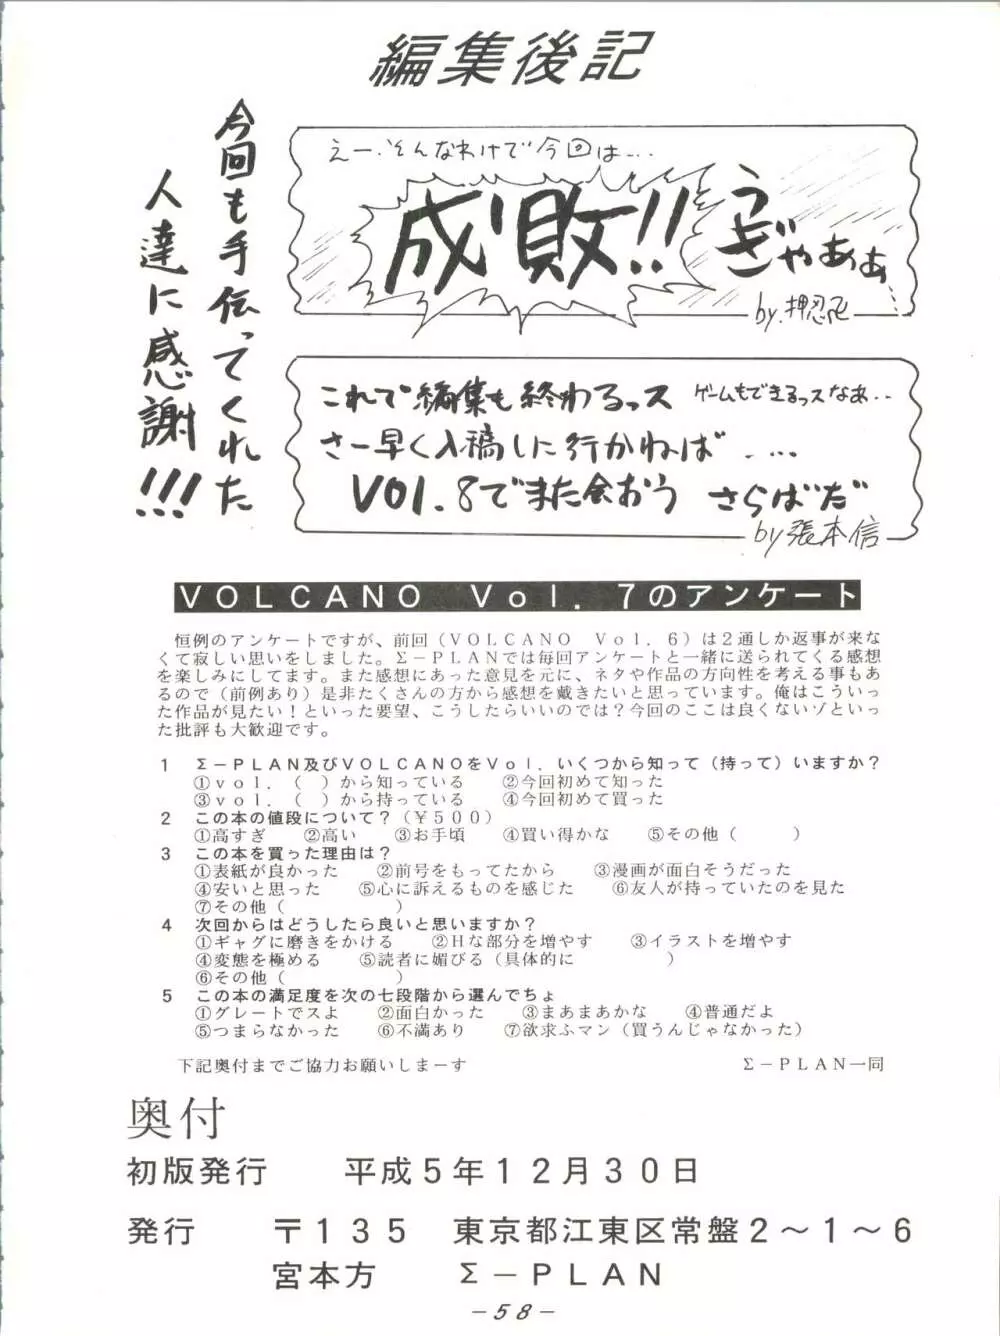 編集後記
今回も手伝ってくれた
人達に感謝!!!
えー、そんなわけで今回は…
成敗!!
うぎゃあぁ…
by.押忍
これで編集も終わるっス ゲームもできるっスなあ‥
さー早く入稿しに行かねば‥…
VOl.8でまた会おう さらばだ
by張本信
VOLCANO Vol.7のアンケート
恒例のアンケートですが、前回(VOLCANO Vol.6)は2通しか返事が来な
くて寂しい思いをしました。Σ−PLANでは毎回アンケートと一緒に送られてくる感想
を楽しみにしてます。また感想にあった意見を元に、ネタや作品の方向性を考える事もあ
るので(前例あり)是非たくさんの方から感想を戴きたいと思っています。俺はこういっ
た作品が見たい!といった要望、こうしたらいいのでは?今回のここは良くないゾといっ
た批評も大歓迎です。
1 Σ−PLAN及びVOLCANOをVol.いくつから知って(持って)いますか?
①vol.( )から知っている ②今回初めて知った
③vol.( )から持っている ④今回初めて買った
2 この本の値段について?(¥500)
①高すぎ ②高い ③お手頃 ④買い得かな ⑤その他( )
3 この本を買った理由は?
①表紙が良かった ②前号をもってたから ③漫画が面白そうだった
④安いと思った ⑤心に訴えるものを感じた ⑥友人が持っていたのを見た
⑦その他( )
4 次回からはどうしたら良いと思いますか?
①ギャグに磨きをかける ②Hな部分を増やす ③イラストを増やす
④変態を極める ⑤読者に媚びる(具体的に )
⑥その他( )
5 この本の満足度を次の七段階から選んでちょ
①グレートでスよ ②面白かった ③まあまあかな ④普通だよ
⑤つまらなかった ⑥不満あり ⑦欲求ふマン(買うんじゃなかった)
下記奥付までご協力お願いしまーす Σ−PLAN一同
奥付
初版発行 平成5年12月30日
発行 〒135 東京都江東区常盤2〜1〜6
宮本方 Σ−PLAN
−58−